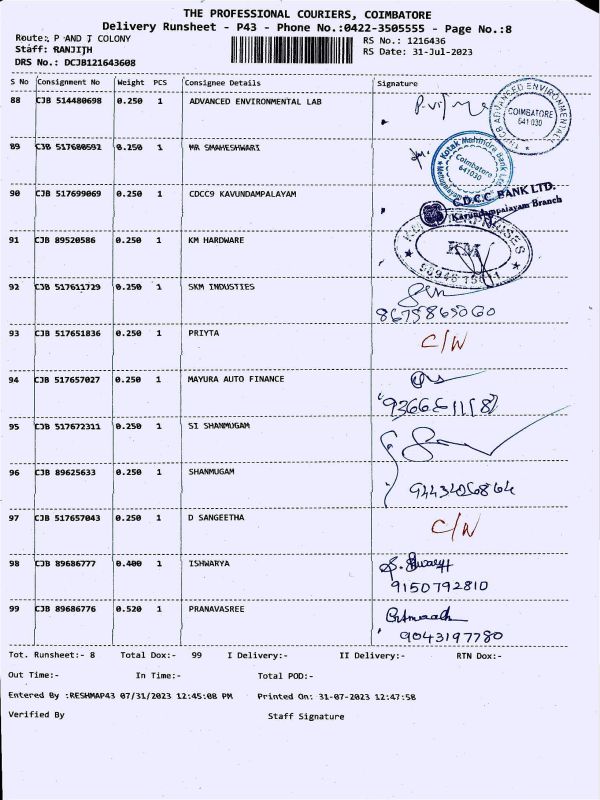 THE PROFESSIONAL COURIERS, COIMBATORE
Delivery Runsheet - P43 - Phone No.:0422-3505555 - Page No.:8
Route: P AND T COLONY RS No.: 1216436
Staff: RANJIJH RS Date: 31-Jul-2023
DRS No.: DCJB121643608
S No Consignment No Weight PCS Consignee Details Signature
88 CJB 514480698 0.250 1 ADVANCED ENVIRONMENTAL LAB
ADVANCED ENVIRONMENTAL
COIMBATORE
641 030
89 CJB 517680592 0.250 1 MR SMAHESHWARI
Kotak Mahindra Bank
Coimbatore
641030
90 CJB 517699069 0.250 1 CDCC9 KAVUNDAMPALAYAM
C.D.C.C BANK LTD.
Kavundampalayam Branch
91 CJB 89520586 0.250 1 KM HARDWARE
KM
92 CJB 517611729 0.250 1 SKM INDUSTIES
8675865060
93 CJB 517651836 0.250 1 PRIYTA C/N
94 CJB 517657027 0.250 1 MAYURA AUTO FINANCE
95 CJB 517672311 0.250 1 SI SHANMUGAM
96 CJB 89625633 0.250 1 SHANMUGAM
97 CJB 517657043 0.250 1 D SANGEETHA C/N
98 CJB 89686777 0.400 1 ISHWARYA
9150792810
99 CJB 89686776 0.520 1 PRANAVASREE
9043197780
Tot. Runsheet:- 8 Total Dox:- 99 I Delivery:- II Delivery:- RTN Dox:-
Out Time:- In Time:- Total POD:-
Entered By :RESHMAP43 07/31/2023 12:45:08 PM Printed On: 31-07-2023 12:47:58
Verified By Staff Signature